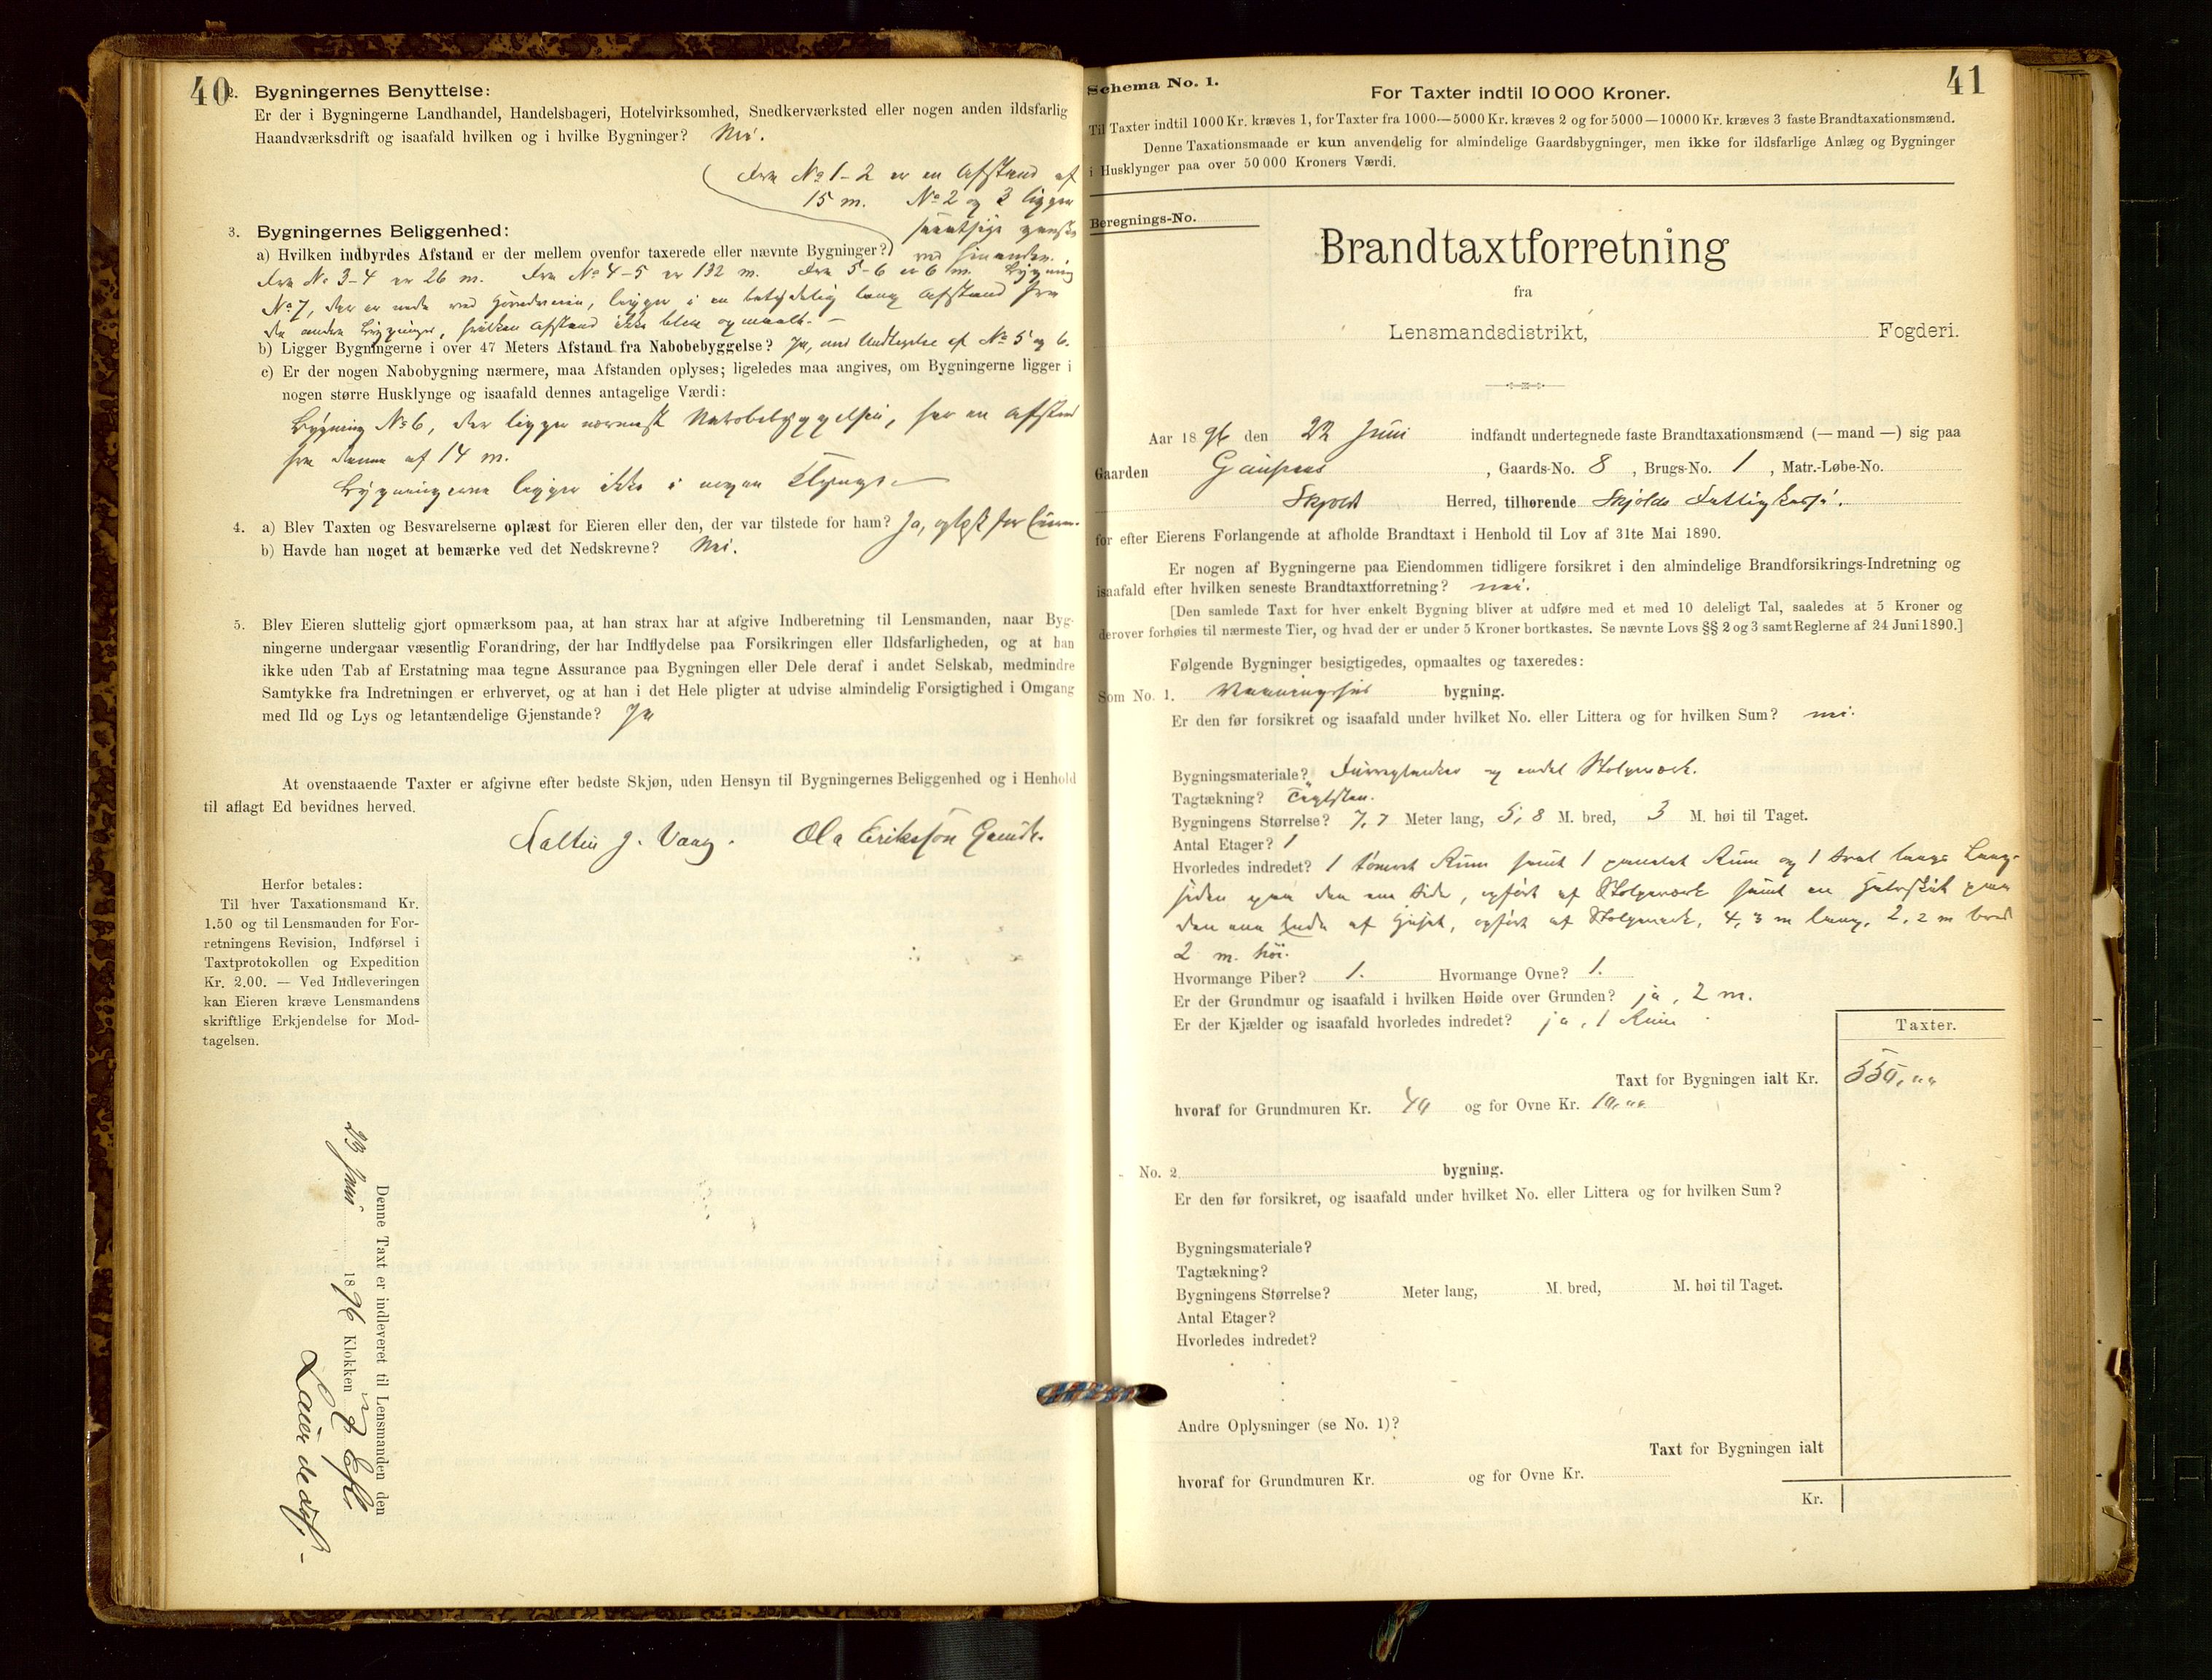 40
2. Bygningernes Benyttelse:
Er der i Bygningerne Landhandel, Handelsbageri, Hotelvirksomhed, Snedkerværksted eller nogen anden ildsfarlig
Haandværksdrift og isaafald hvilken og i hvilke Bygninger? Nei.
Fra No 1-2 er en Afstand af
15 m. No 2 og 3 ligger
3. Bygningernes Beliggenhed:
a) Hvilken indbyrdes Afstand er der mellem ovenfor taxerede eller nævnte Bygninger? ved hinanden.
Fra No 3-4 er 26 m. Fra No 4-5 er 132 m. Fra 5-6 er 6 m. Bygning
No 7, der er nede ved , ligger i en betydelig lang Afstand fra
de andre Bygninger, hvilken Afstand ikke blev opmaalt. -
b) Ligger Bygningerne i over 47 Meters Afstand fra Nabobebyggelse? Ja, med Undtagelse af No 5 og 6.
c) Er der nogen Nabobygning nærmere, maa Afstanden oplyses; ligeledes maa angives, om Bygningerne ligger i
nogen større Husklynge og isaafald dennes antagelige Værdi:
Bygning No 6, der ligger nærmest Nabobebyggelsen, har en Afstand
fra denne af 14 m.
Bygningerne ligger ikke i nogen Klynge. -
4. a) Blev Taxten og Besvarelserne oplæst for Eieren eller den, der var tilstede for ham? Ja, oplæst for Eieren.
b) Havde han noget at bemærke ved det Nedskrevne? Nei.
5. Blev Eieren sluttelig gjort opmærksom paa, at han strax har at afgive Indberetning til Lensmanden, naar Byg-
ningerne undergaar væsentlig Forandring, der har Indflydelse paa Forsikringen eller Ildsfarligheden, og at han
ikke uden Tab af Erstatning maa tegne Assurance paa Bygningen eller Dele deraf i andet Selskab, medmindre
Samtykke fra Indretningen er erhvervet, og at han i det Hele pligter at udvise almindelig Forsigtighed i Omgang
med Ild og Lys og letantændelige Gjenstande? Ja
At ovenstaaende Taxter er afgivne efter bedste Skjøn, uden Hensyn til Bygningernes Beliggenhed og i Henhold
til aflagt Ed bevidnes herved.
J. Vaag. Ola Eriksson
Herfor betales:
Til hver Taxationsmand Kr.
1.50 og til Lensmanden for For-
retningens Revision, Indførsel i
Taxtprotokollen og Expedition
Kr. 2.00. — Ved Indleveringen
kan Eieren kræve Lensmandens
skriftlige Erkjendelse for Mod-
tagelsen.
Denne Taxt er indleveret til Lensmanden den
23 Juni 1896 Klokken Eft.
41
Schema No. 1.
For Taxter indtil 10 000 Kroner.
Til Taxter indtil 1000 Kr. kræves 1, for Taxter fra 1000—5000 Kr. kræves 2 og for 5000—10000 Kr. kræves 3 faste Brandtaxationsmænd.
Denne Taxationsmaade er kun anvendelig for almindelige Gaardsbygninger, men ikke for ildsfarlige Anlæg og Bygninger
i Husklynger paa over 50 000 Kroners Værdi.
Beregnings-No.
Brandtaxtforretning
fra
Lensmandsdistrikt, Fogderi.
Aar 1896 den 22 Juni indfandt undertegnede faste Brandtaxationsmænd (— mand —) sig paa
Gaarden , Gaards-No. 8, Brugs-No. 1, Matr.-Løbe-No.
Skjold Herred, tilhørende Skjolds Fattigkasse.
for efter Eierens Forlangende at afholde Brandtaxt i Henhold til Lov af 31te Mai 1890.
Er nogen af Bygningerne paa Eiendommen tidligere forsikret i den almindelige Brandforsikrings-Indretning og
isaafald efter hvilken seneste Brandtaxtforretning? nei.
[Den samlede Taxt for hver enkelt Bygning bliver at udføre med et med 10 deleligt Tal, saaledes at 5 Kroner og
derover forhøies til nærmeste Tier, og hvad der er under 5 Kroner bortkastes. Se nævnte Lovs §§ 2 og 3 samt Reglerne af 24 Juni 1890.]
Følgende Bygninger besigtigedes, opmaaltes og taxeredes:
Som No. 1. Vaaningshus bygning.
Er den før forsikret og isaafald under hvilket No. eller Littera og for hvilken Sum? nei.
Bygningsmateriale? Furuplanker og endel Stolpeværk.
Tagtækning? Taglsten.
Bygningens Størrelse? 7,7 Meter lang, 5,8 M. bred, 3 M. høi til Taget.
Antal Etager? 1
Hvorledes indredet? 1 tømret Rum samt 1 panelet Rum og 1 Sval langs Lang-
siden paa den ene Side, opført af Stolpeværk samt en paa
den ene Ende af Huset, opført af Stolpeværk, 4,3 m lang, 2,2 m bred
2 m. høi.
Hvormange Piber? 1. Hvormange Ovne? 1.
Er der Grundmur og isaafald i hvilken Høide over Grunden? ja, 2 m.
Er der Kjælder og isaafald hvorledes indredet? ja, 1 Rum
Taxter.
Taxt for Bygningen ialt Kr. 550,00
hvoraf for Grundmuren Kr. 40 og for Ovne Kr. 10,00
No. 2 bygning.
Er den før forsikret, og isaafald under hvilket No. eller Littera og for hvilken Sum?
Bygningsmateriale?
Tagtækning?
Bygningens Størrelse? Meter lang, M. bred, M. høi til Taget.
Antal Etager?
Hvorledes indredet?
Andre Oplysninger (se No. 1)?
Taxt for Bygningen ialt
hvoraf for Grundmuren Kr. og for Ovne Kr.
Kr.